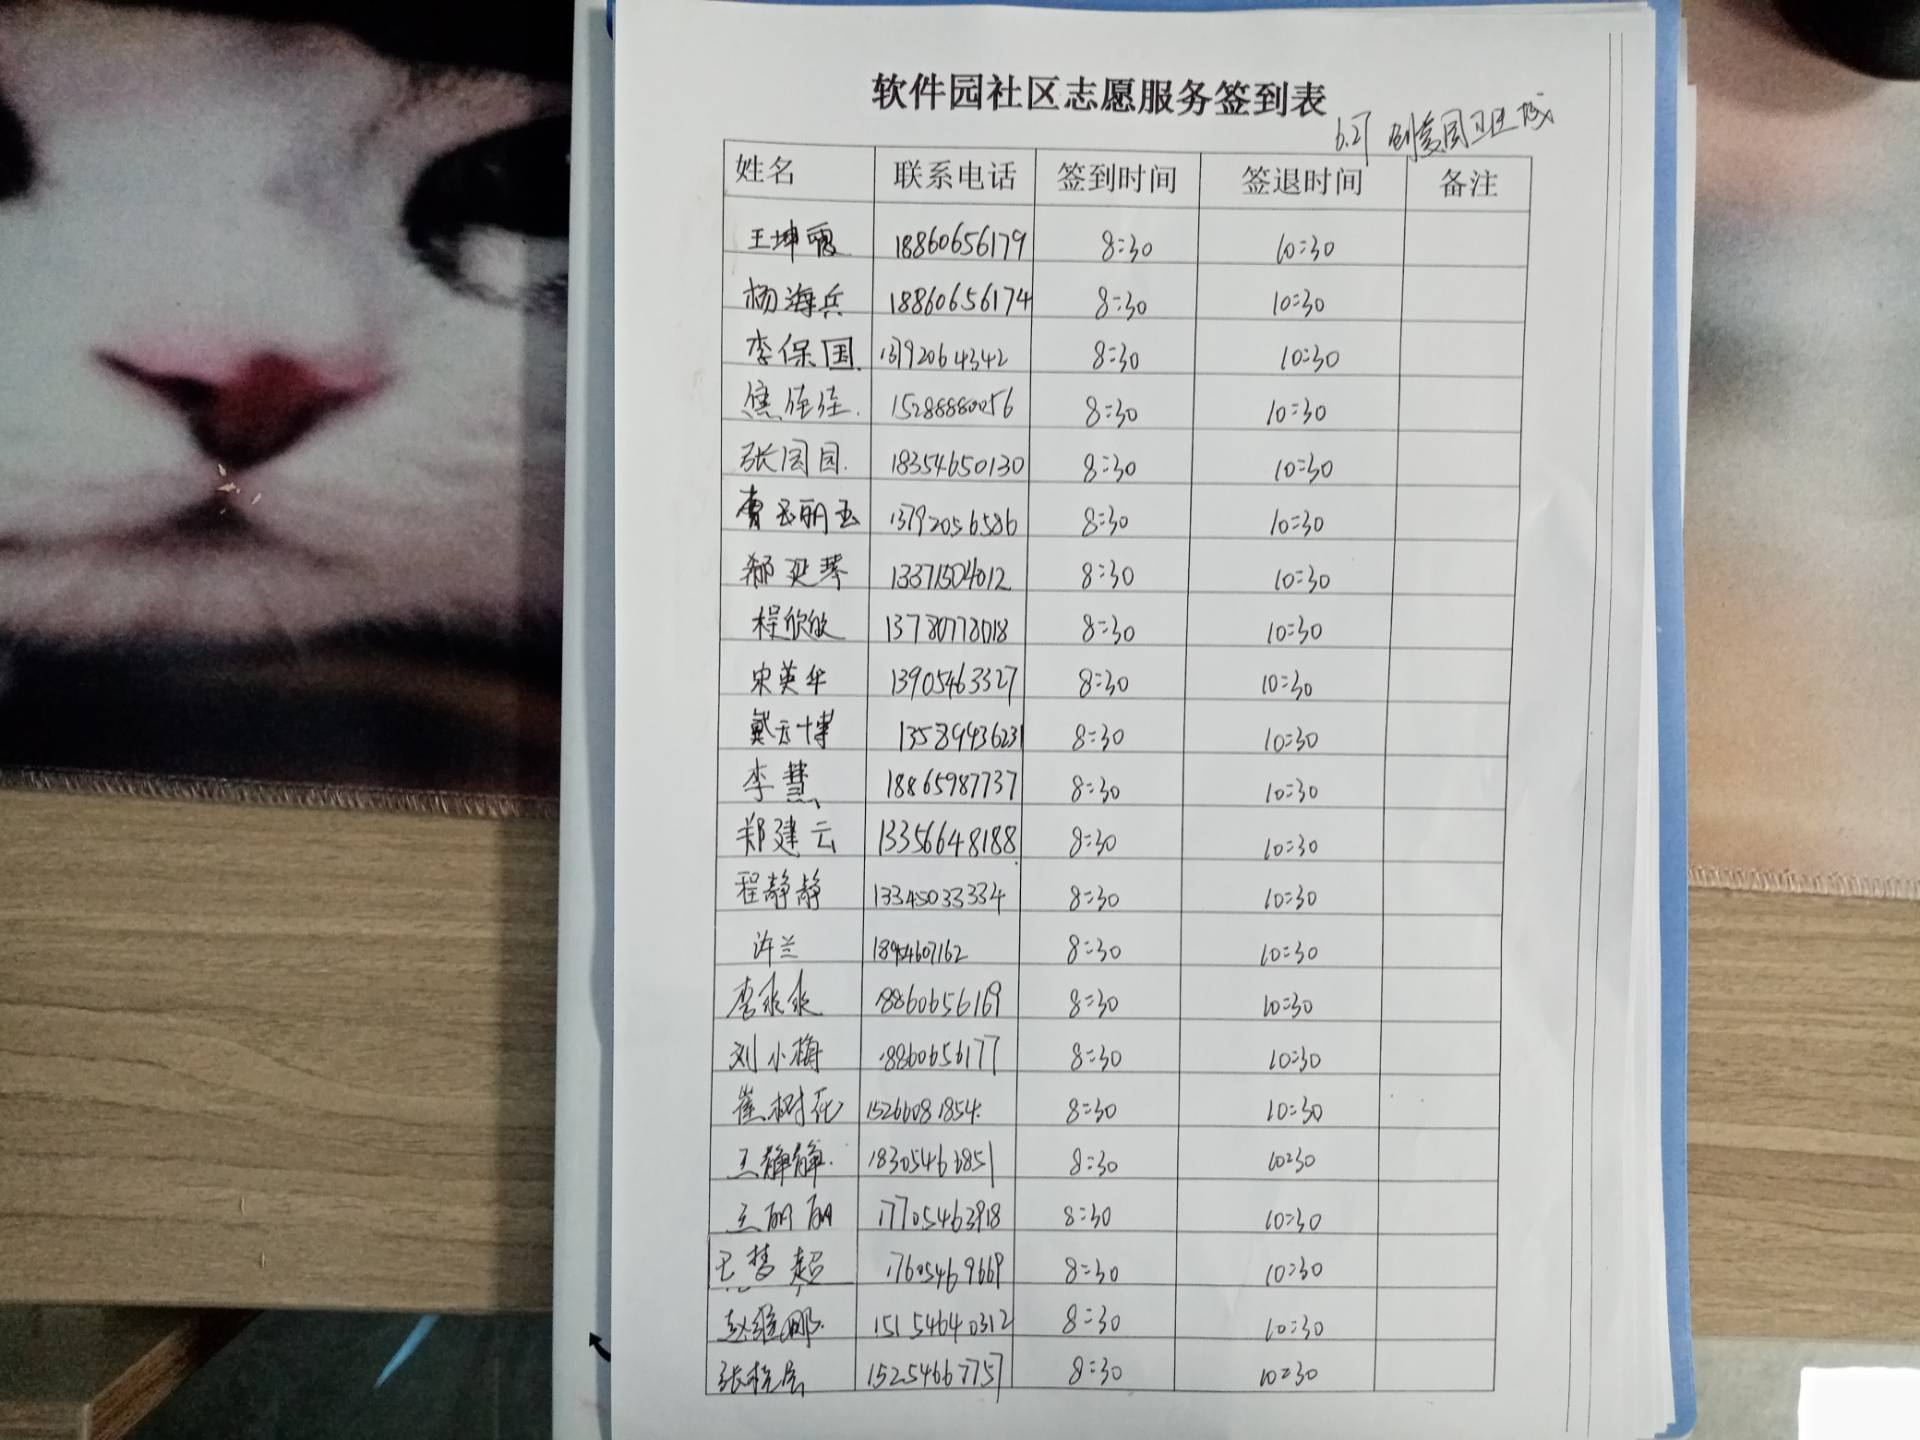 软件园社区志愿服务签到表
6.27 创美国卫区域
姓名 联系电话 签到时间 签退时间 备注
王坤霞 18860656179 8:30 10:30
杨海兵 18860656174 8:30 10:30
李保国 13792064342 8:30 10:30
焦佳佳 15288880056 8:30 10:30
张园园 18354650130 8:30 10:30
13792056586 8:30 10:30
郝延琴 13371504012 8:30 10:30
程欣欣 13780778018 8:30 10:30
宋英华 13905463327 8:30 10:30
戴云博 13589436231 8:30 10:30
李慧 18865987737 8:30 10:30
郑建云 13356648188 8:30 10:30
程静静 13345033334 8:30 10:30
许兰 8:30 10:30
李永永 18860656169 8:30 10:30
刘小梅 18860656177 8:30 10:30
崔树花 15266081854 8:30 10:30
王静静 18305466851 8:30 10:30
王丽丽 17705463918 8:30 10:30
王梦超 17605469669 8:30 10:30
赵维娜 15154640312 8:30 10:30
15254667757 8:30 10:30